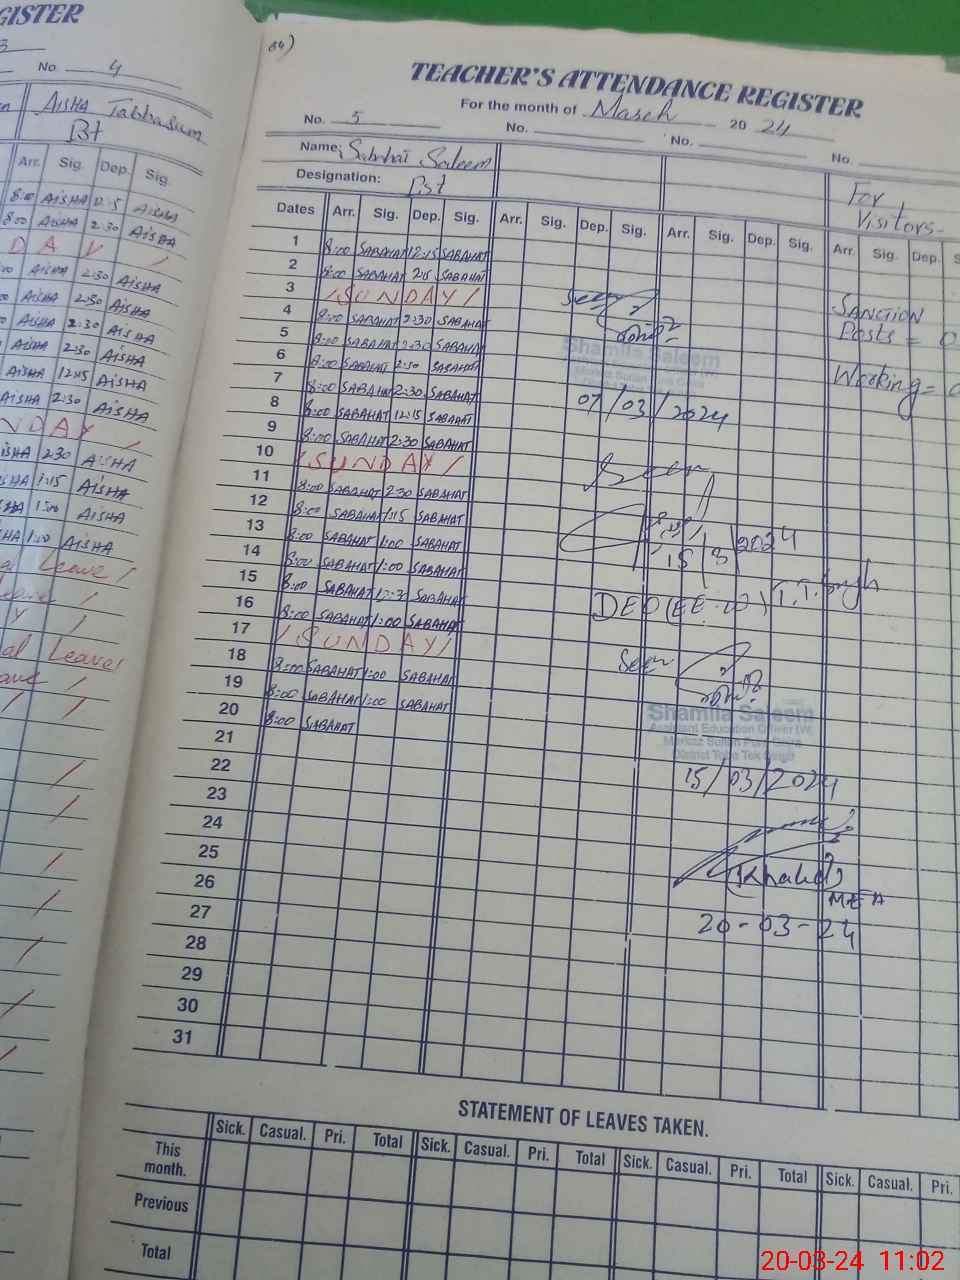 GISTER
No. 4
AISHA Tabbasum
Bt
Arr. Sig. Dep. Sig.
8:00 AISHA 12:15 AISHA
8:00 AISHA 2:30 AISHA
D A Y /
AISHA 2:30 AISHA
AISHA 2:30 AISHA
AISHA 2:30 AISHA
AISHA 2:30 AISHA
AISHA 12:15 AISHA
AISHA 2:30 AISHA
NDAY /
ISHA 2:30 AISHA
SHA 1:15 AISHA
SHA 1:00 AISHA
HA 1:00 AISHA
Leave /
al Leave /
TEACHER'S ATTENDANCE REGISTER
For the month of March 2024
No. 5 No. No. No.
Name: Sabahat Saleem
Designation: Pst
For
Visitors-
Dates Arr. Sig. Dep. Sig. Arr. Sig. Dep. Sig. Arr. Sig. Dep. Sig. Arr. Sig. Dep. S
1 8:00 SABAHAT 12:15 SABAHAT
2 8:00 SABAHAT 2:15 SABAHAT
3 / SUNDAY /
4 8:00 SABAHAT 2:30 SABAHAT
5 8:00 SABAHAT 2:30 SABAHAT
6 8:00 SABAHAT 2:30 SABAHAT
7 8:00 SABAHAT 2:30 SABAHAT
8 8:00 SABAHAT 12:15 SABAHAT
9 8:00 SABAHAT 2:30 SABAHAT
10 / SUNDAY /
11 8:00 SABAHAT 2:30 SABAHAT
12 8:00 SABAHAT 1:15 SABAHAT
13 8:00 SABAHAT 1:00 SABAHAT
14 8:00 SABAHAT 1:00 SABAHAT
15 8:00 SABAHAT SABAHAT
16 8:00 SABAHAT 1:00 SABAHAT
17 / SUNDAY /
18 8:00 SABAHAT 1:00 SABAHAT
19 8:00 SABAHAT 1:00 SABAHAT
20 8:00 SABAHAT
21
22
23
24
25
26
27
28
29
30
31
SANCTION
Posts =
Working =
Seen
Shamila Saleem
07/03/2024
Seen
15/3/2024
DEO (EE-W) T.T.Singh
Seen
Shamila Saleem
Assistant Education Officer (W)
District Toba Tek Singh
15/03/2024
(Khalid)
MEA
20-03-24
STATEMENT OF LEAVES TAKEN.
Sick. Casual. Pri. Total Sick. Casual. Pri. Total Sick. Casual. Pri. Total Sick. Casual. Pri.
This month.
Previous
Total
20-03-24 11:02